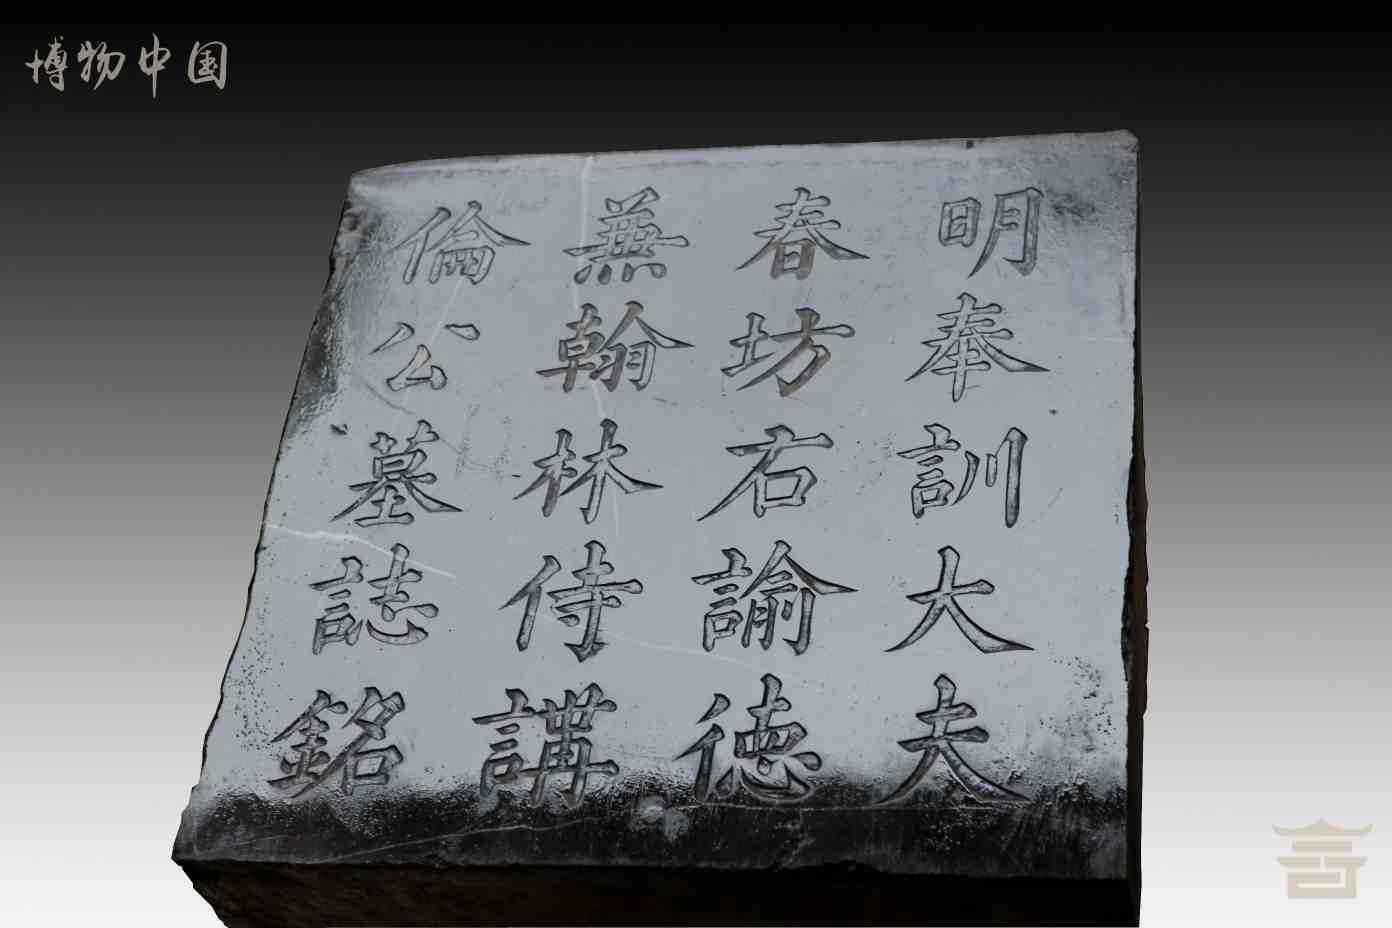 博物中国
明奉訓大夫
春坊右諭德
兼翰林侍講
倫公墓誌銘